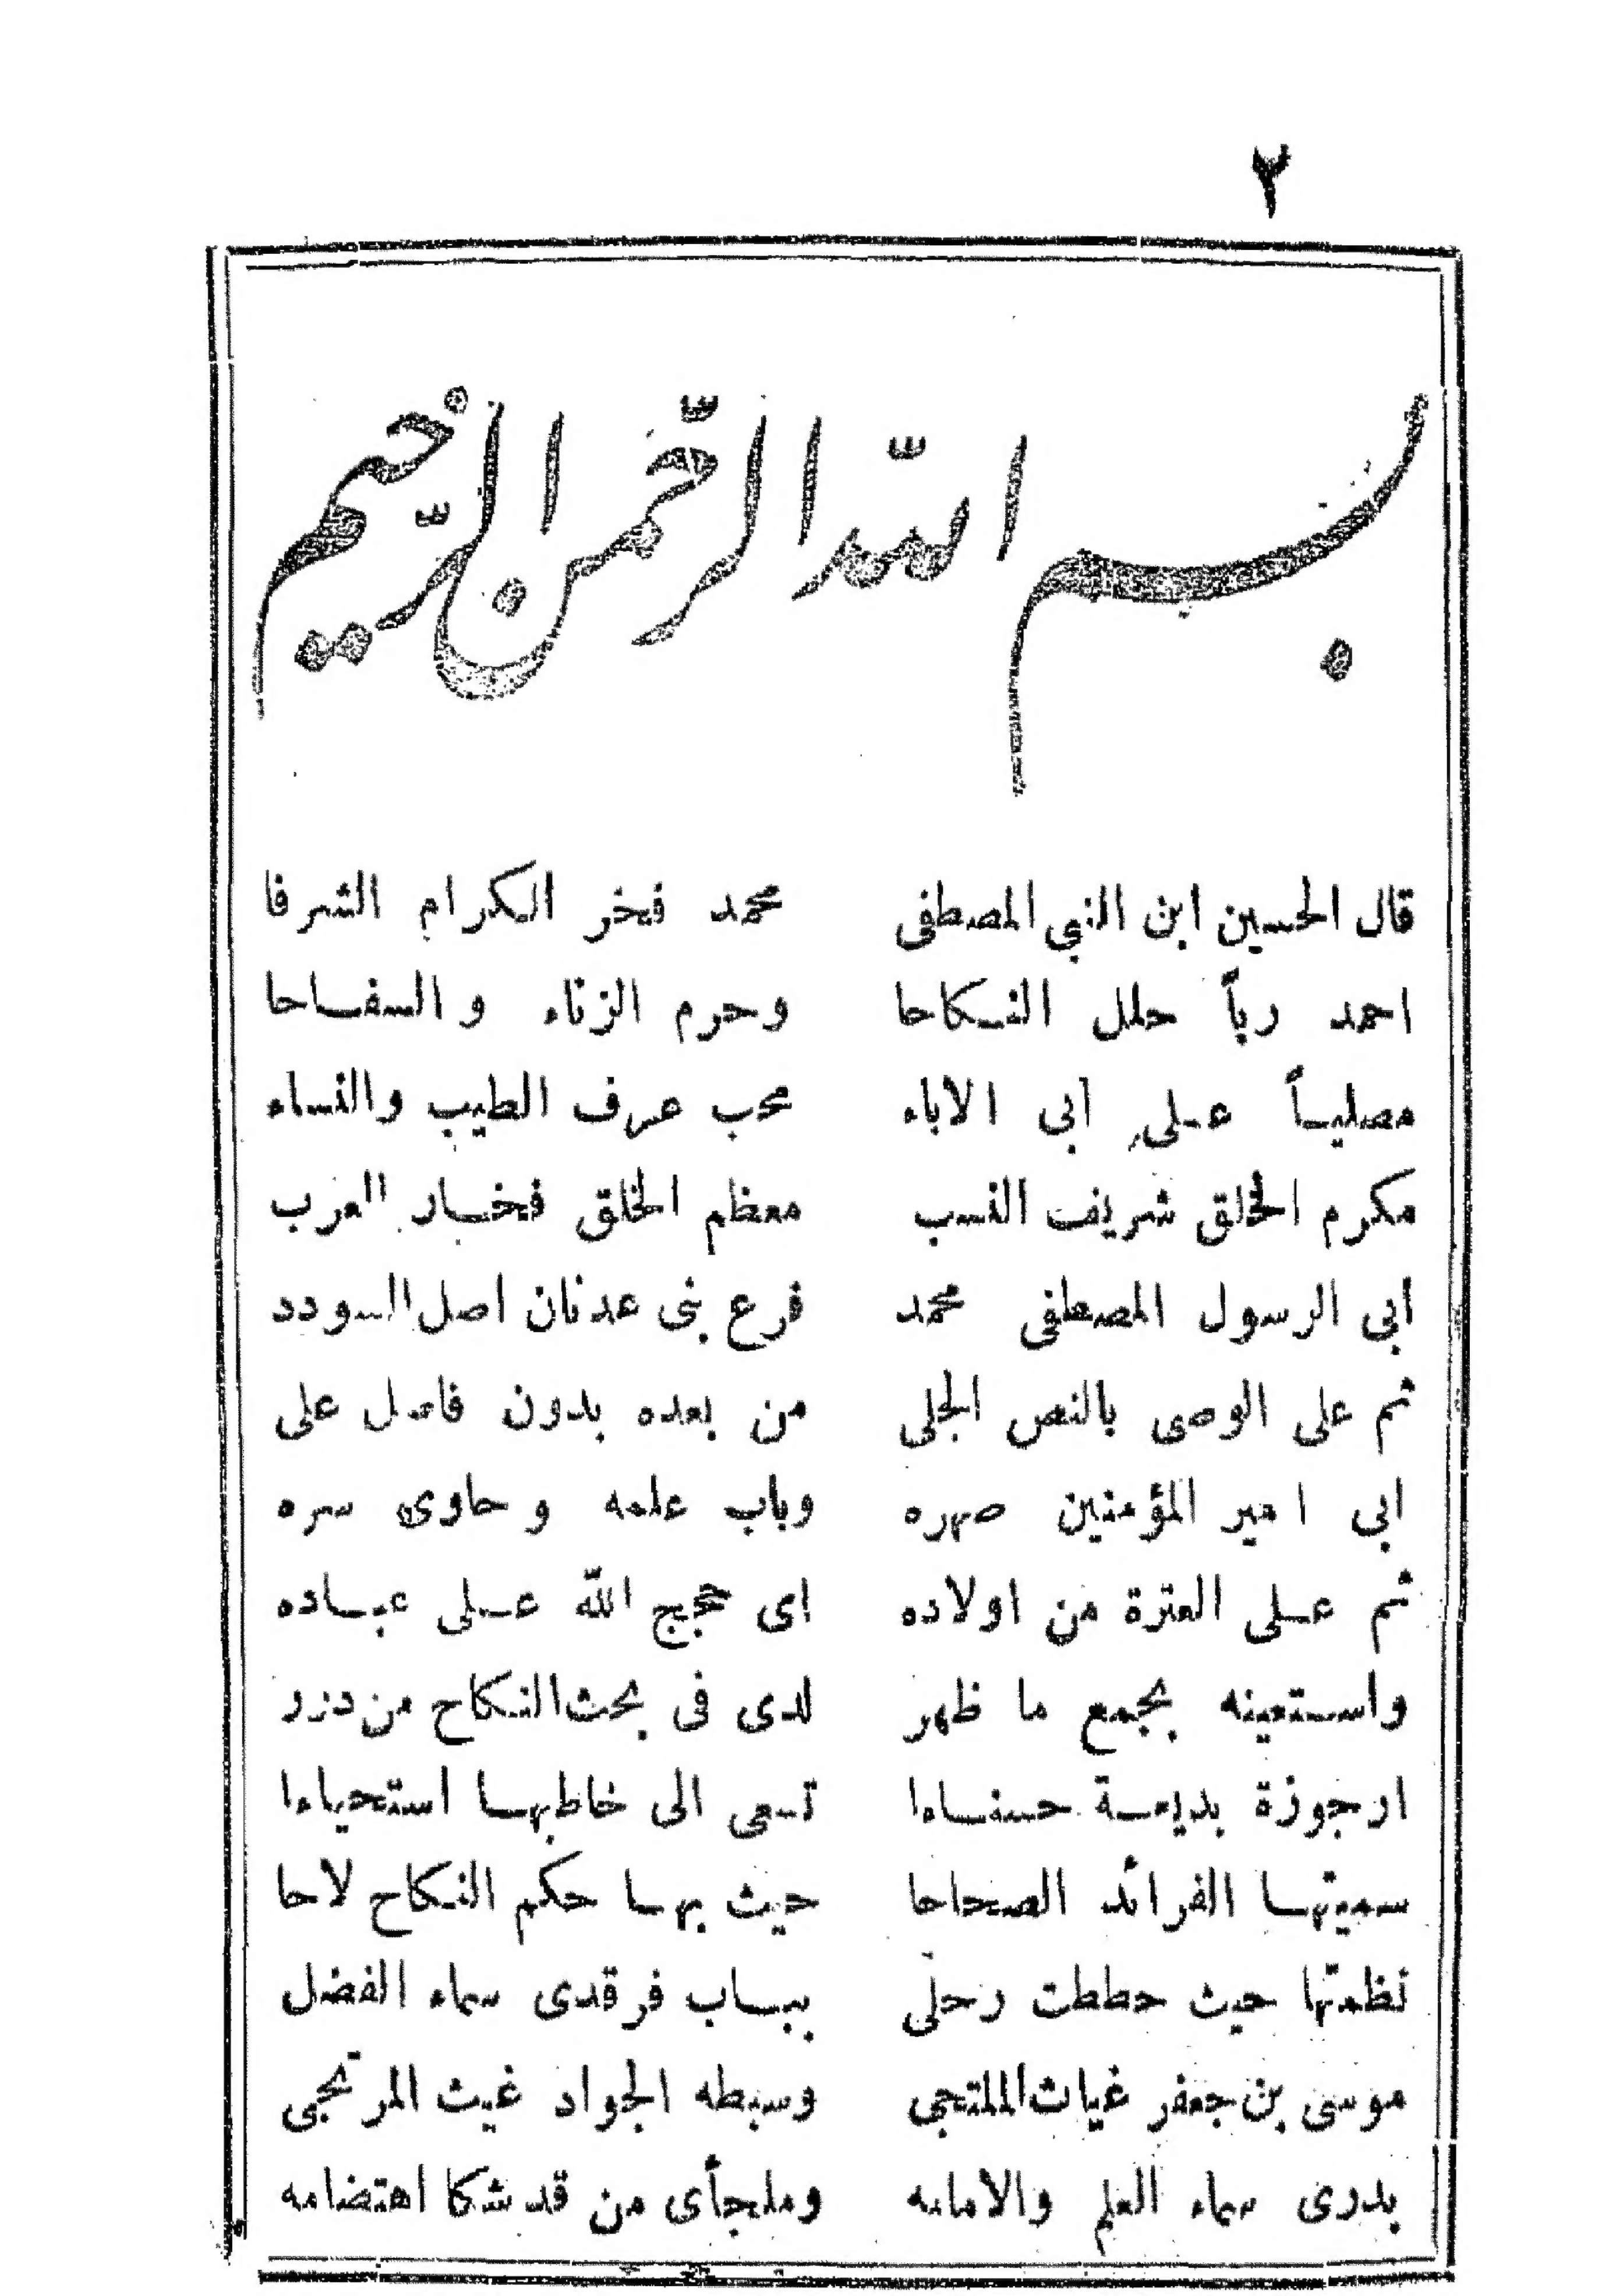 ٢
بسم الله الرّحمن الرّحيم
قال الحسين ابن النبي المصطفى محمد فخر الكرام الشرفا
احمد رباً حلل النكاحا وحرم الزناء والسفاحا
مصلياً على ابي الاباء محب عرف الطيب والنساء
مكرم الخلق شريف النسب معظم الخلق فخار العرب
ابي الرسول المصطفى محمد فرع بنى عدنان اصل السودد
ثم على الوصى بالنص الجلى من بعده بدون فاصل على
ابى امير المؤمنين صهره وباب علمه وحاوى سره
ثم على العترة من اولاده اى حجج الله على عباده
واستعينه بجمع ما ظهر لدى فى بحث النكاح من درر
ارجوزة بديعة حسناءا تسعى الى خاطبها استحياءا
سميتها الفرائد الصحاحا حيث بها حكم النكاح لاحا
نظمتها حيث حططت رحلى بباب فرقدى سماء الفضل
موسى بن جعفر غياث الملتجى وسبطه الجواد غيث المرتجى
بدرى سماء العلم والامامه وملجأى من قد شكا اهتضامه